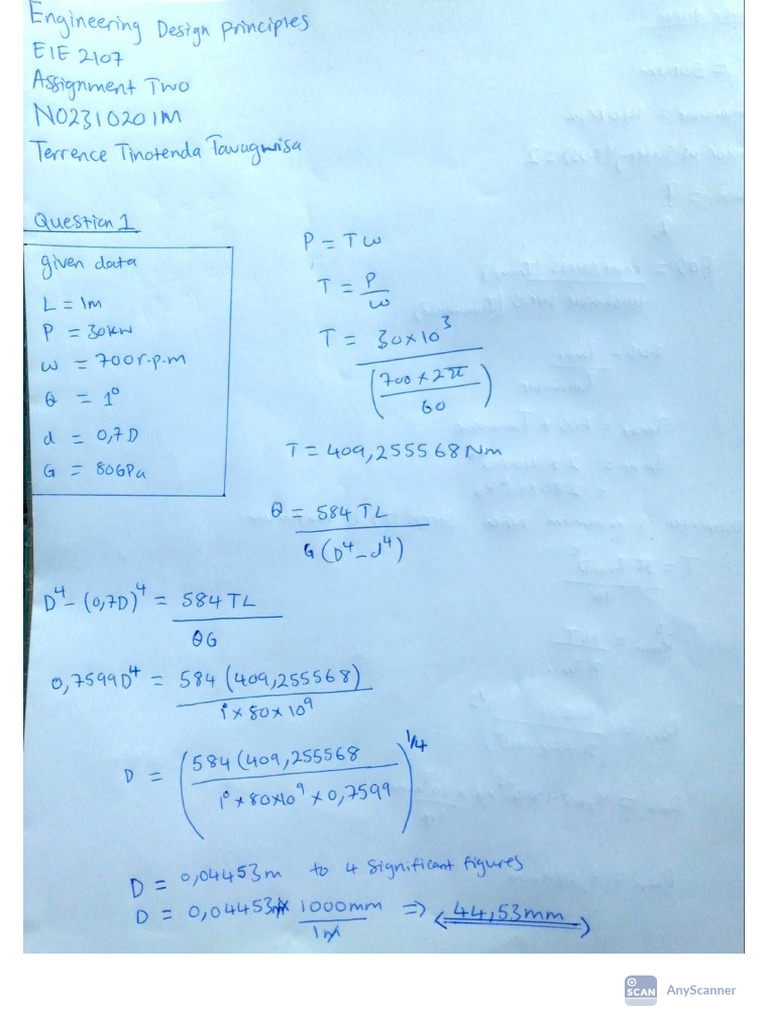 Engineering Design principles
EIE 2107
Assignment Two
N02310201M
Terrence Tinotenda Tavagwisa
Question 1
given data
L = 1m
P = 30kw
ω = 700r.p.m
θ = 1°
d = 0,7D
G = 80GPa
P = Tω
T = P/ω
T = 30×10³
(700 × 2π / 60)
T = 409,255568Nm
θ = 584 TL
G(D⁴-d⁴)
D⁴ - (0,7D)⁴ = 584 TL
θG
0,7599D⁴ = 584 (409,255568)
1° × 80 × 10⁹
D = (584 (409,255568 / 1° × 80×10⁹ × 0,7599)^1/4
D = 0,04453m to 4 significant figures
D = 0,04453m × 1000mm / 1m ⇒ 44,53mm
SCAN AnyScanner